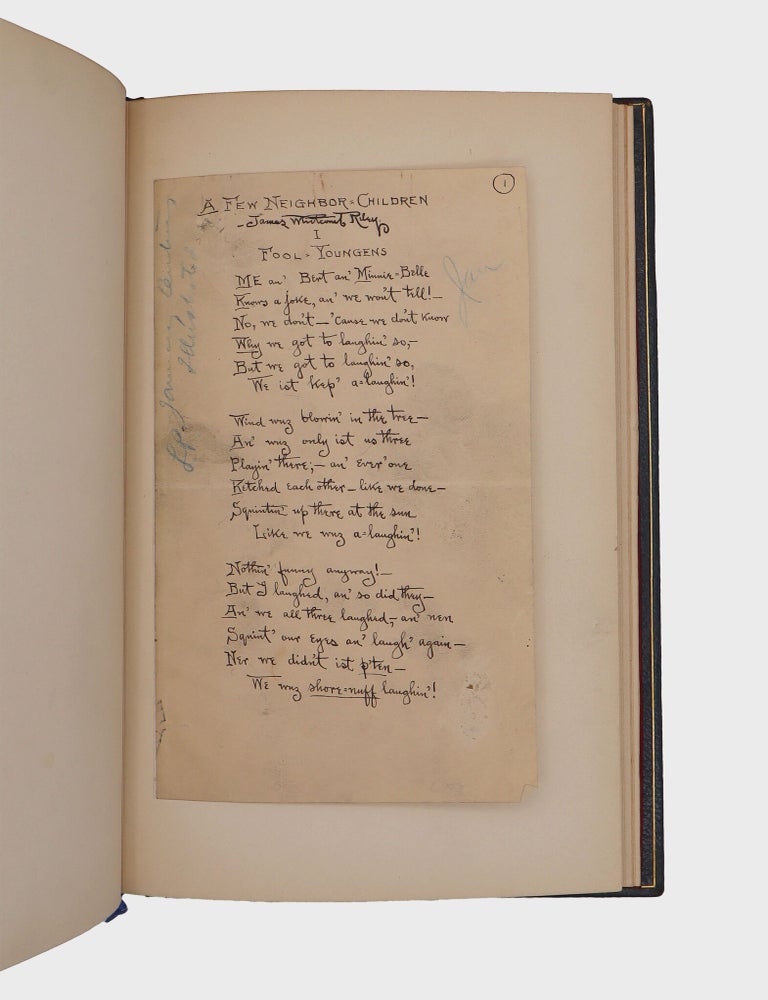 1
A FEW NEIGHBOR=CHILDREN
—James Whitcomb Riley.
I
FOOL=YOUNGENS
ME an' Bert an' Minnie=Belle
Knows a joke, an' we won't tell!—
No, we don't—'cause we don't know
Why we got to laughin' so,—
But we got to laughin' so,
We ist kep' a=laughin'!
Wind wuz blowin' in the tree—
An' wuz only ist us three
Playin' there;—an' ever'one
Ketched each other—like we done—
Squintin' up there at the sun
Like we wuz a=laughin'!
Nothin' funny anyway!—
But I laughed, an' so did they—
An' we all three laughed,—an' nen
Squint' our eyes an' laugh' again—
Ner we didn't ist p'ten—
We wuz shore=nuff laughin'!